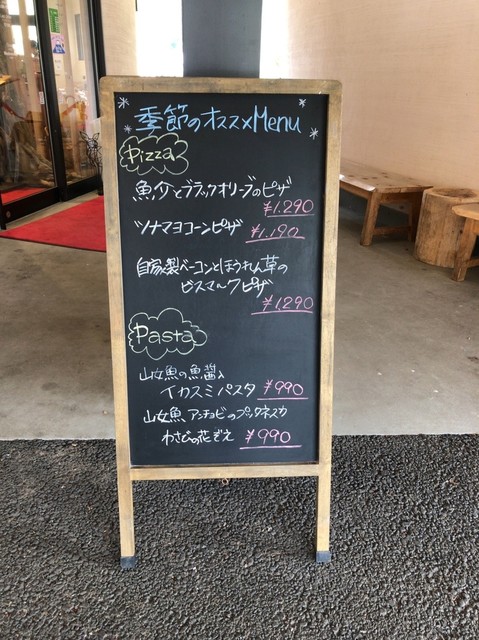 季節のオススメMenu
Pizza
魚介とブラックオリーブのピザ
¥1.290
ツナマヨコーンピザ ¥1.190
自家製ベーコンとほうれん草の
ビスマークピザ
¥1,290
Pasta
山女魚の魚醤入
イカスミパスタ ¥990
山女魚アンチョビのプッタネスカ
わさびの花ぞえ ¥990